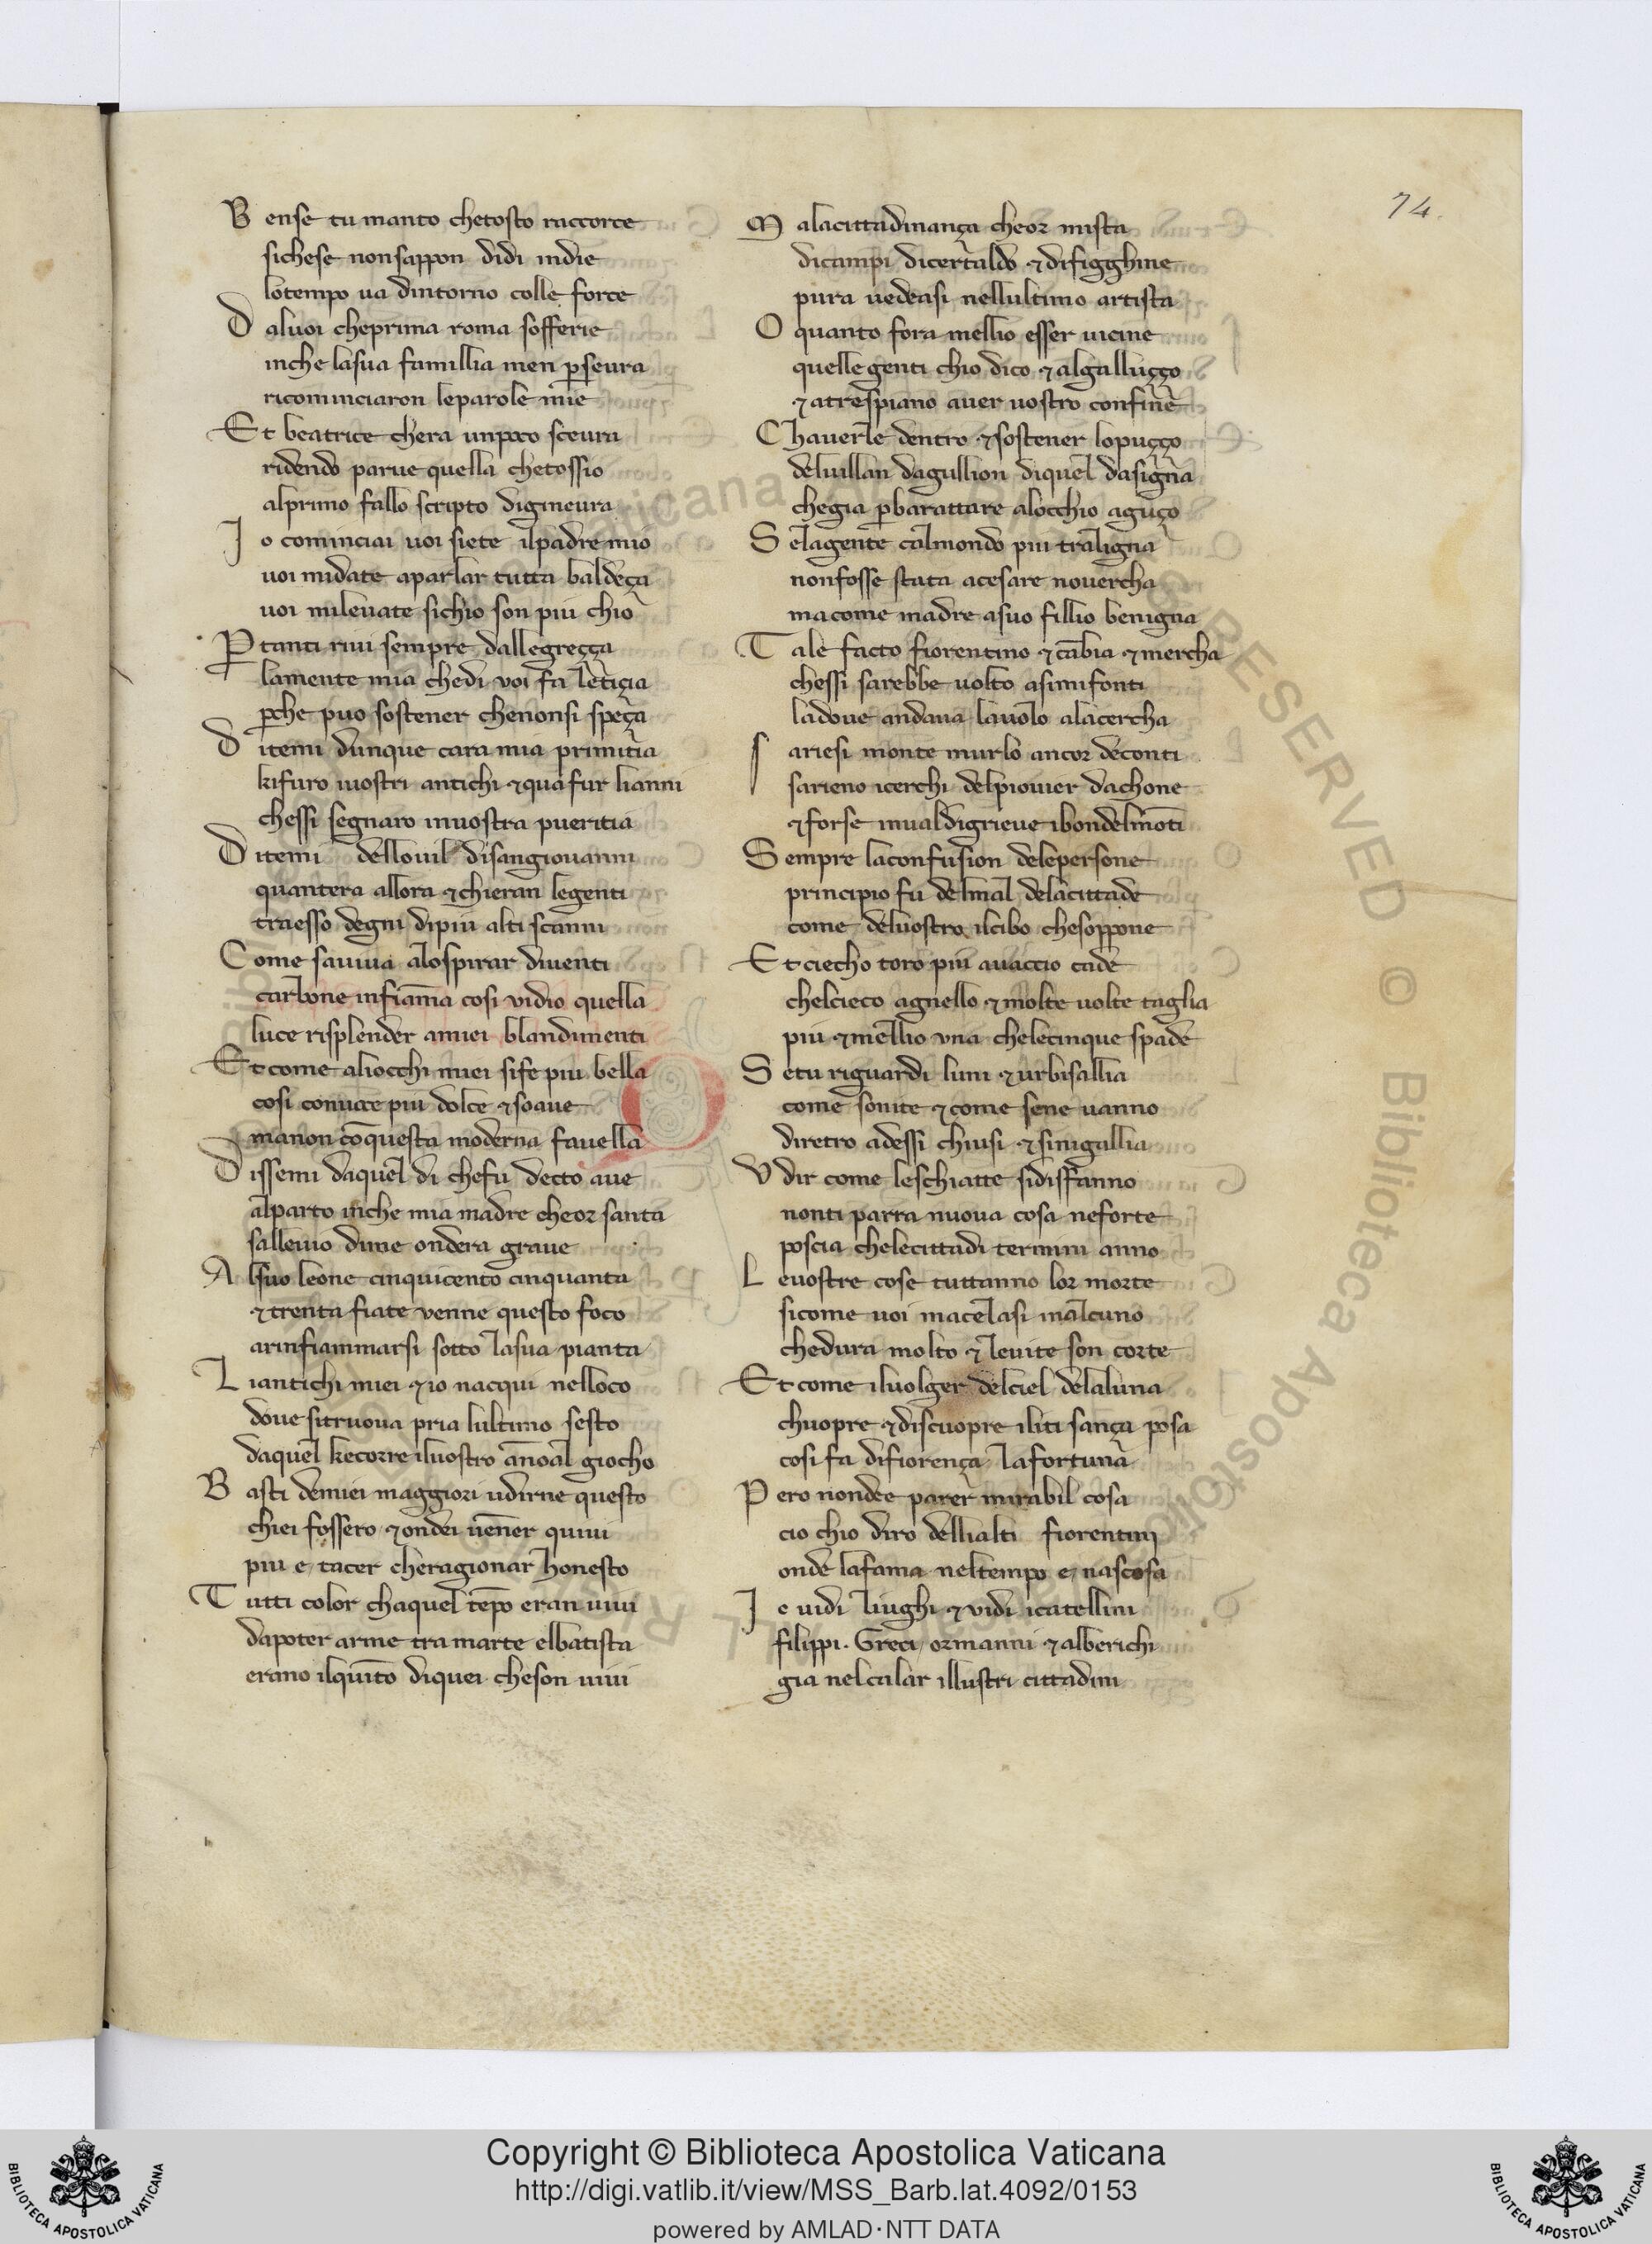 74.
B ense tu manto chetosto raccorce
sichese nonsappon didi indie
lotempo ua dintorno colle force
D aluoi cheprima roma sofferie
inche lasua famillia men ꝑseura
ricominciaron leparole mie
Et beatrice chera unpoco sceura
ridendo parue quella chetossio
alprimo fallo scripto digineura
J o cominciai uoi siete ilpadre mio
uoi midate aparlar tutta baldeça
uoi mileuate sichio son piu chio
Ꝑ tanti riui sempre dallegreçça
lamente mia chedi uoi fa letiçia
ꝑche puo sostener chenonsi speça
D itemi dunque cara mia primitia
kifuro iuostri antichi ⁊qua fur lianni
chessi segnaro inuostra pueritia
D itemi dellouil disangiouanni
quantera allora ⁊chieran legenti
traesso degni dipiu alti scanni
C ome sauiua alospirar diuenti
carbone infiāma cosi vidio quella
luce risplender amiei blandimenti
Et come aliocchi miei sife piu bella
cosi conuoce piu dolce ⁊soaue
manon cōquesta moderna fauella
D issemi daquel di chefu decto aue
alparto inche mia madre cheor santa
salleuio dime ondera graue
A lsuo leone cinquicento cinquanta
⁊trenta fiate venne questo foco
arinfiammarsi sotto lasua pianta
L iantichi miei ⁊io nacqui nelloco
doue sitruoua pria lultimo sesto
daquel kecorre iluostro ānoal giocho
B asti demiei maggiori udirne questo
chiei fossero ⁊ondei uēner quiui
piu e tacer cheragionar honesto
T utti color chaquel tēpo eran iuui
dapoter arme tra marte elbatista
erano ilquīto diquei cheson uiui
M alacittadinança cheor mista
dicampi dicertaldo ⁊difigghine
pura uedeasi nellultimo artista
O quanto fora mellio esser uicine
quelle genti chio dico ⁊algalluçço
⁊atrespiano auer uostro confine
C hauerle dentro ⁊sostener lopuçço
deluillan dagullion diquel dasigna
chegia ꝑbarattare alocchio aguço
S elagente calmondo piu traligna
nonfosse stata acesare nouercha
macome madre asuo fillio benigna
T ale facto fiorentino ⁊cābia ⁊mercha
chessi sarebbe uolto asimifonti
ladoue andaua lauolo alacercha
S ariesi monte murlo ancor deconti
sarieno icerchi delpiouier dachone
⁊forse inualdigrieue ibondelmōti
S empre laconfusion delepersone
principio fu delmal delacittade
come deluostro ilcibo chesoppone
Et ciecho toro piu auaccio cade
chelcieco agnello ⁊molte uolte taglia
piu ⁊mellio vna chelecinque spade
S etu riguardi luni ⁊urbisallia
come sonite ⁊come sene uanno
diretro adessi chiusi ⁊sinigallia
V dir come leschiatte sidisfanno
nonti parra nuoua cosa neforte
poscia chelecittadi termini anno
L euostre cose tuttanno lor morte
sicome uoi macelasi inalcuno
chedura molto ⁊leuite son corte
Et come iluolger delciel delaluna
chuopre ⁊discuopre iliti sança posa
cosi fa difiorença lafortuna
P ero nondee parer mirabil cosa
cio chio diro dellialti fiorentini
onde lafama neltempo e nascosa
J o uidi liughi ⁊vidi icatellini
filippi. Greci ormanni ⁊alberichi
gia nelcalar illustri cittadini
Copyright © Biblioteca Apostolica Vaticana
http://digi.vatlib.it/view/MSS_Barb.lat.4092/0153
powered by AMLAD·NTT DATA
BIBLIOTECA APOSTOLICA VATICANA
BIBLIOTECA APOSTOLICA VATICANA